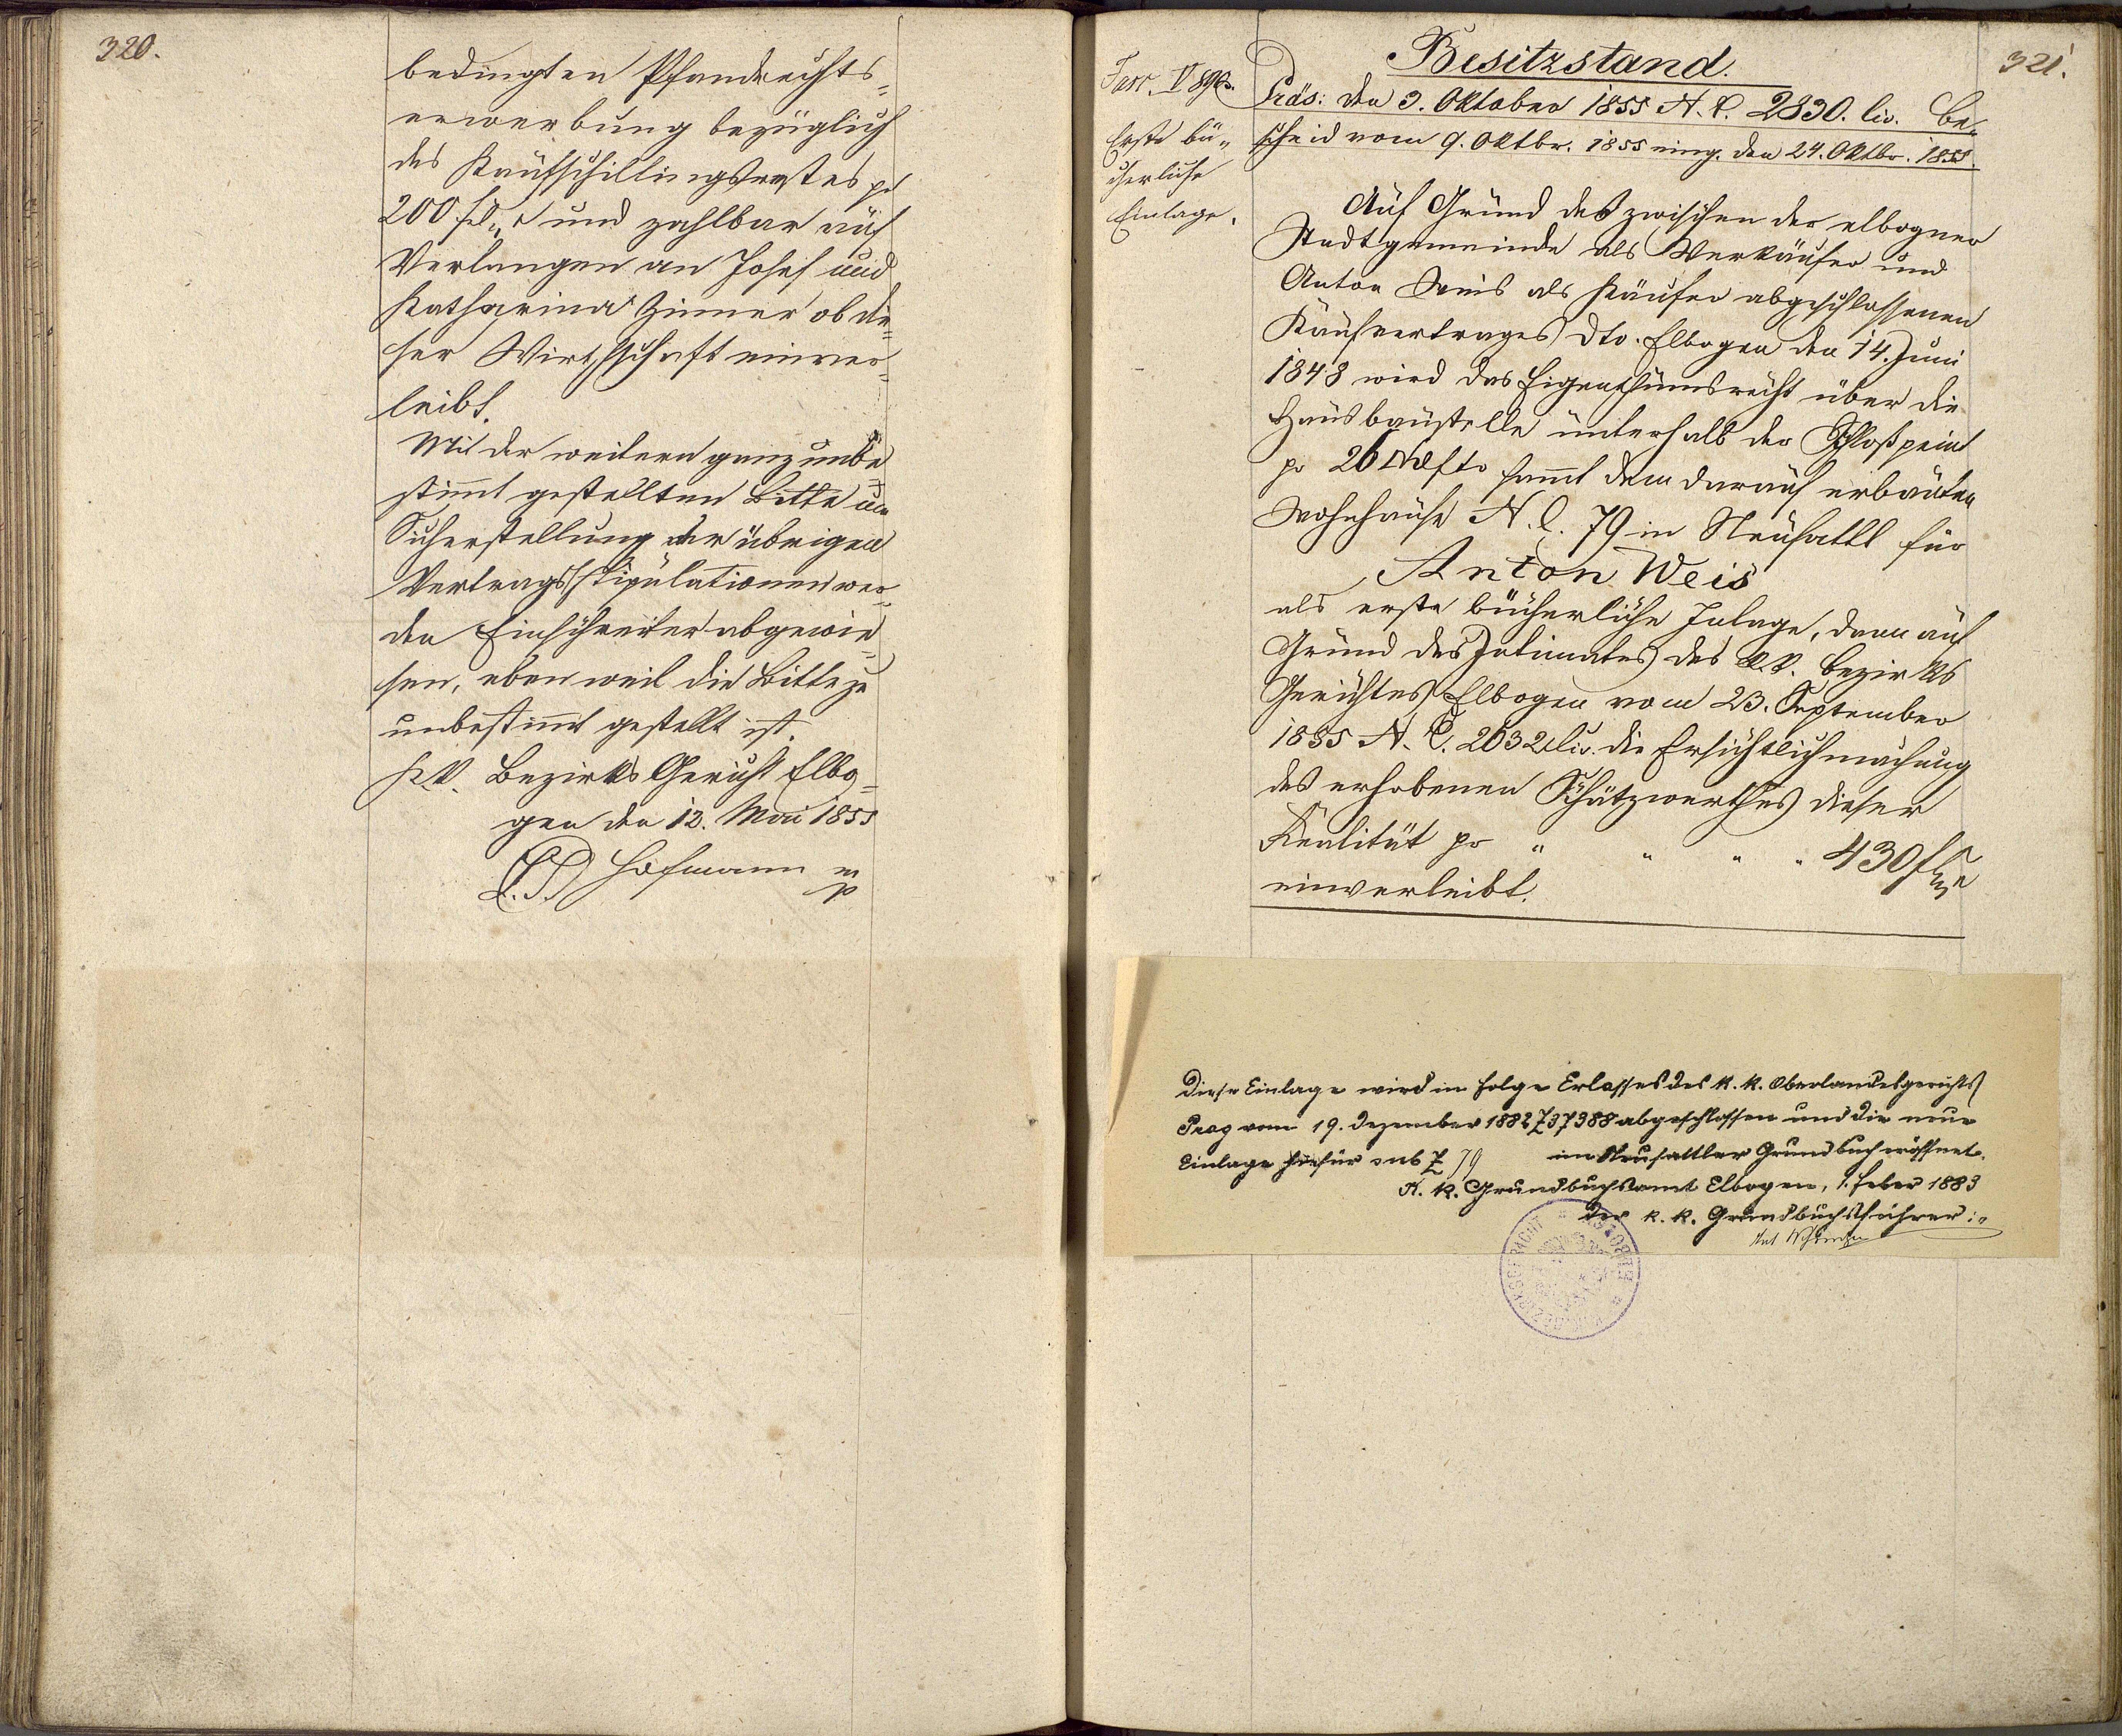 320.
bedingten Pfandrechts-
erwerbung bezüglich
des Kaufschillingsrestes pr
200 fl und zahlbar auf
Verlangen an Josef und
Katharina Zinner ob die-
ser Wirthschaft einver-
leibt.
Mit der weitern ganz unbe-
stimt gestellten Bitte um
Sicherstellung der übrigen
Vertragsstipulationen wer-
den Einschreiter abgewie-
sen, eben weil die Bitte zu
unbestimt gestellt ist.
K.K. Bezirks Gericht Elbo-
gen den 12. Mai 1855
L.S. Hofmann mp
321.
Besitzstand.
Präs: den 3. Oktober 1855 N.E. 2830. civ. Be-
scheid vom 9. Oktbr. 1855 eing. den 24. Oktbr. 1855.
Erste bü-
cherliche
Einlage.
Auf Grund des zwischen der elbogner
Stadtgemeinde als Verkäufer und
Anton Weis als Käufer abgeschlossenen
Kaufvertrages dto. Elbogen den 14. Juni
1848 wird das Eigenthumsrecht über die
Hausbaustelle unterhalb der Schloßpeint
pr 26 sammt dem darauf erbauten
Wohnhause N.C. 79 in Neusattl für
Anton Weis
als erste bücherliche Inlage, dann auf
Grund des Intimates des k.k. Bezirks
Gerichtes Elbogen vom 23. September
1855 N.E. 2632 civ. die Ersichtlichmachung
des erhobenen Schätzwerthes dieser
Realität pr " " " " 430 f
einverleibt.
Diese Einlage wird in Folge Erlasses des k. k. Oberlandesgerichts
Prag vom 19. Dezember 1882 Z 37388 abgeschlossen und die neue
Einlage hiefür sub Z 79 im Neusattler Grundbuch eröffnet.
K. k. Grundbuchsamt Elbogen, 1. Feber 1883
Der k. k. Grundbuchsführer: